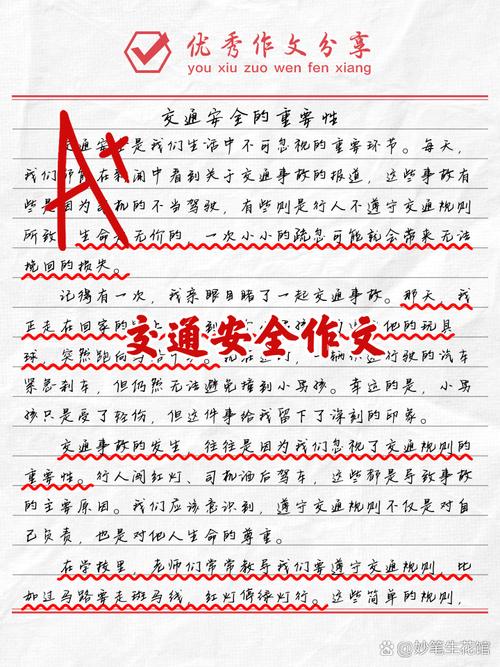 优秀作文分享
you xiu zuo wen fen xiang
交通安全的重要性
A+
交通安 是我们生活中不可忽视的重要环节。每天，
我们 在 闻中看到关于交通事故的报道，这些事故有
些是因为 机的不当驾驶，有些则是行人不遵守交通规则
所致 生命 无价的，一次小小的疏忽可能就会带来无法
挽回的损失。
记得有一次，我亲眼目睹了一起交通事故。那天，我
正走在回家的 到 他的玩具
球，突然跑向 一辆 行驶的汽车
紧急刹车，但仍然无法避免撞到小男孩。幸运的是，小男
孩只是受了轻伤，但这件事给我留下了深刻的印象。
交通安全作文
交通事故的发生，往往是因为我们忽视了交通规则的
重要性。行人闯红灯、司机酒后驾车，这些都是导致事故
的主要原因。我们应该意识到，遵守交通规则不仅是对自
己负责，也是对他人生命的尊重。
在学校里，老师们常常教导我们要遵守交通规则，比
如过马路要走斑马线，红灯停绿灯行。这些简单的规则，
@妙笔生花馆